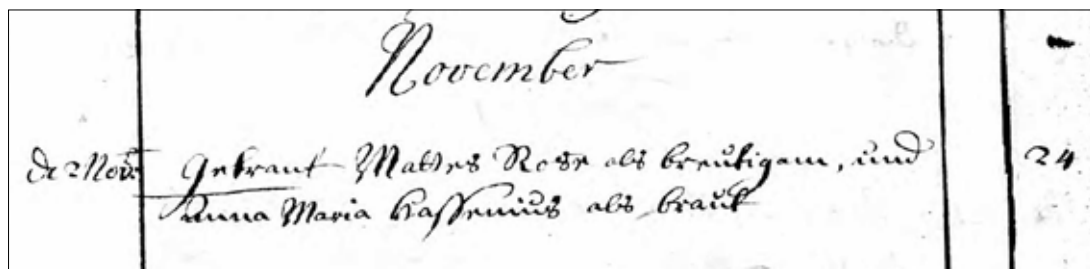 November
de 2 Nov Getraut Mattes Rose als breutigam, und 24
Anna Maria Hassenius als braut